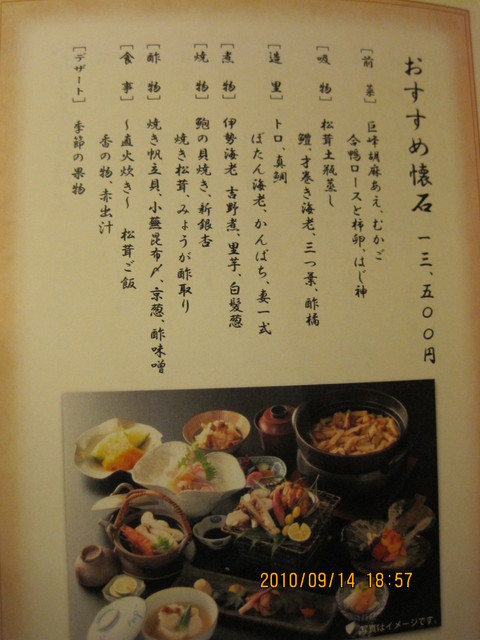 おすすめ懐石 一三、五〇〇円
[前菜] 巨峰胡麻あえ、むかご
合鴨ロースと柿卵、はじ神
[吸物] 松茸土瓶蒸し
鱧、才巻き海老、三つ葉、酢橘
[造里] トロ、真鯛
ぼたん海老、かんぱち、妻一式
[煮物] 伊勢海老 吉野煮、里芋、白髪葱
[焼物] 鮑の貝焼き、新銀杏
焼き松茸、みょうが酢取り
[酢物] 焼き帆立貝、小蕪昆布〆、京葱、酢味噌
[食事] ~直火炊き~ 松茸ご飯
香の物、赤出汁
[デザート] 季節の果物
2010/09/14 18:57
写真はイメージです。